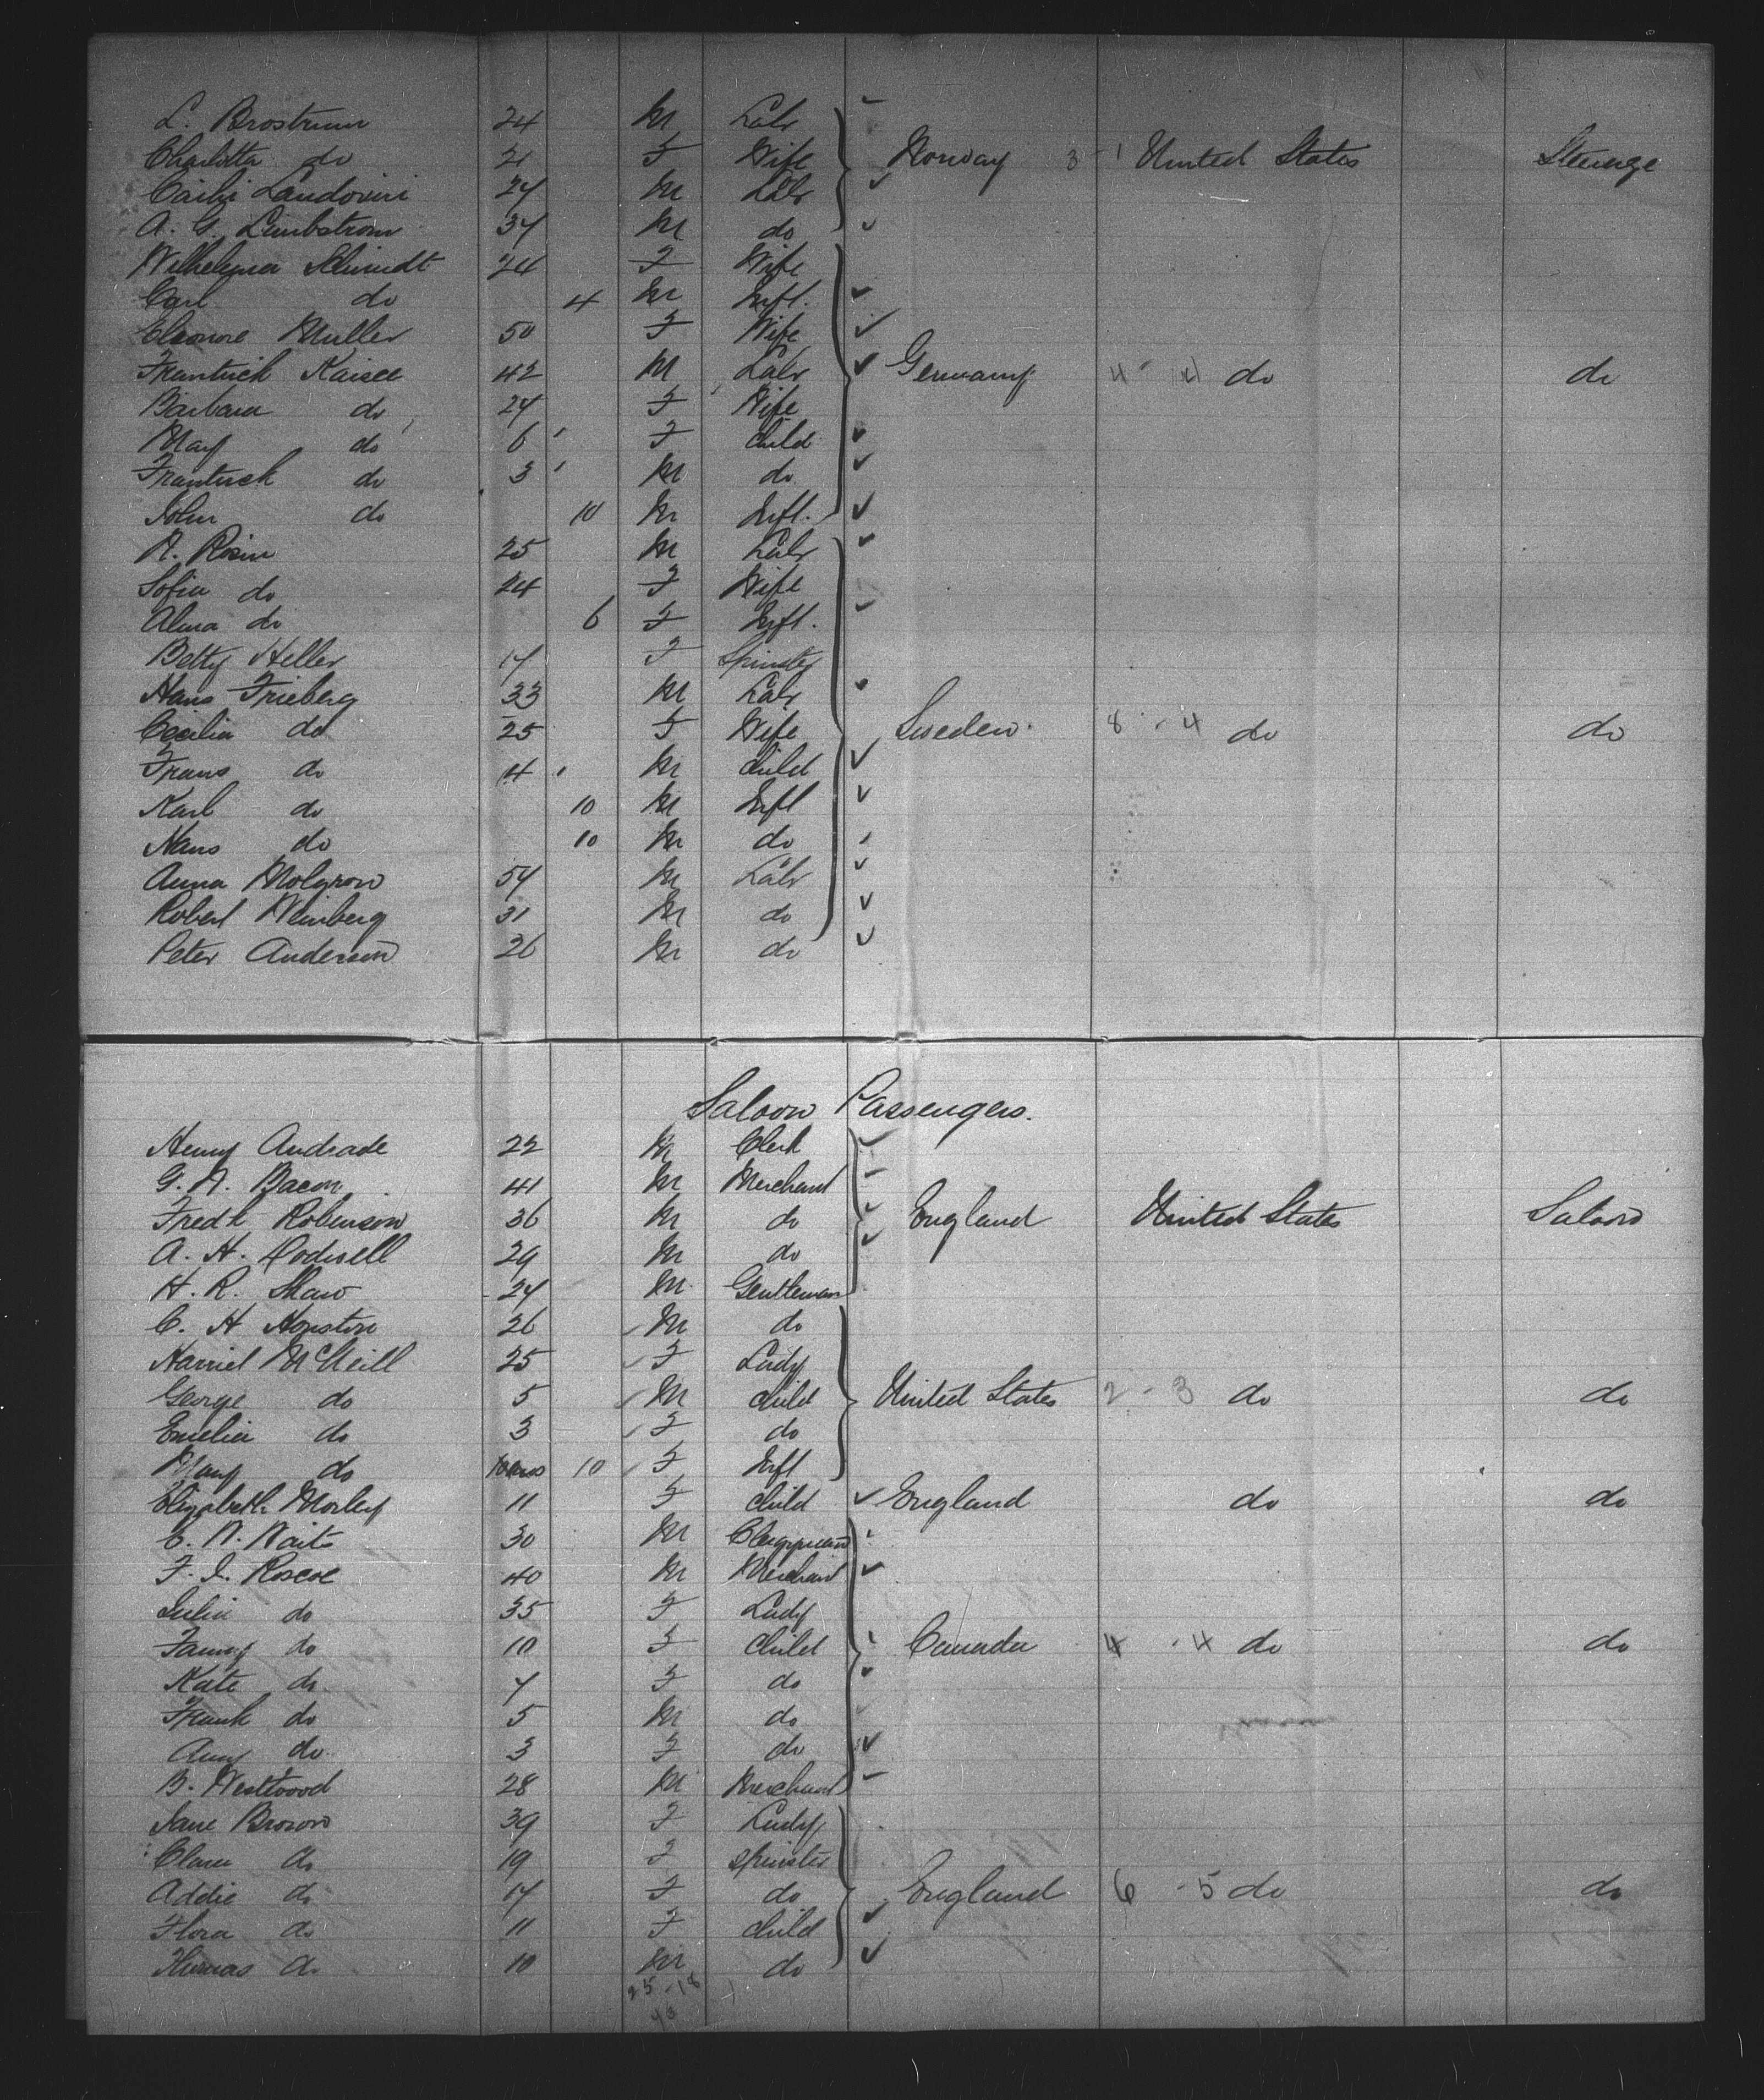 L. Brostrum 24 M Labr
Charlotta do 21 F Wife Norway 3 - 1 United States Steerage
24 M Labr
A. G. 34 M do
Wilhelmina Schmidt 24 F Wife
Carl do 4 M Inft.
Eleonore Muller 50 F Wife
Frantisek Kaisee 42 M Labr Germany 4 - 4 do do
Barbara do 24 F Wife
Mary do 6 F Child
Frantisek do 3 M do
John do 10 M Inft.
A. Rosin 25 M Labr
Sofia do 24 F Wife
Alma do 6 F Inft.
Betty Heller 17 F Spinster
Hans Frieberg 33 M Labr
Cecilia do 25 F Wife Sweden 8 - 4 do do
Frans do 4 M child
Karl do 10 M Inft
Hans do 10 M do
Anna Molgron 54 M Labr
Robert Weinberg 31 M do
Peter Anderson 26 M do
Saloon Passengers.
Henry Andrade 22 M Clerk
G. A. Bacon 41 M Merchant
Fredk Robinson 36 M do England United States Saloon
A. H. 29 M do
H. R. Shaw 24 M Gentleman
C. H 26 M do
Harriet McNeill 25 F Lady
George do 5 M child United States 2 - 3 do do
Emelia do 3 F do
Mary do 10 F Inft
Elizabeth Morley 11 F child England do do
C. W. Waits 30 M Clergyman
F. I. Roscoe 40 M Merchant
Julia do 35 F Lady
Fanny do 10 F child Canada 4 - 4 do do
Kate do 7 F do
Frank do 5 M do
Amy do 3 F do
B. Westwood 28 M Merchant
Jane Brown 39 F Lady
Clara do 19 F spinster
Addie do 17 F do England 6 - 5 do do
Flora do 11 F child
Thomas do 10 M do
25 - 18
43